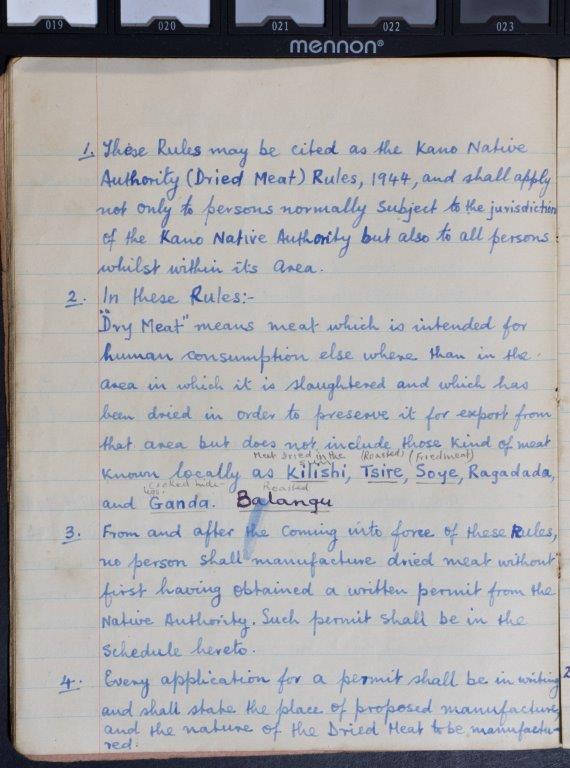 019 020 021 022 023
mennon®
1. These Rules may be cited as the Kano Native
Authority (Dried Meat) Rules, 1944, and shall apply
not only to persons normally subject to the jurisdiction
of the Kano Native Authority but also to all persons
whilst within its area.
2. In these Rules:-
"Dry Meat" means meat which is intended for
human consumption else where than in the
area in which it is slaughtered and which has
been dried in order to preserve it for export from
that area but does not include those kind of meat
Meat Dried in the (Roasted) (Fried meat)
known locally as Kilishi, Tsire, Soye, Ragadada,
cooked hide Roasted
and Ganda. Balangu
3. From and after the coming into force of these Rules,
no person shall manufacture dried meat without
first having obtained a written permit from the
Native Authority. Such permit shall be in the
Schedule hereto.
4. Every application for a permit shall be in writing
and shall state the place of proposed manufacture,
and the nature of the Dried Meat to be manufactu-
red.